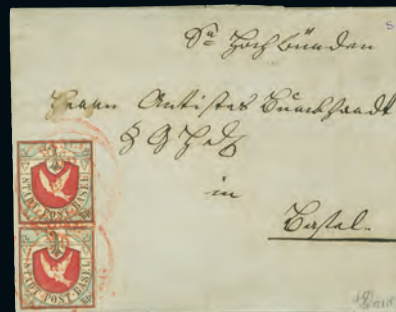 Sr Hochwürden
Herrn Antistes Burckhardt
in
Basel.
STADT-POST-BASEL
STADT-POST-BASEL